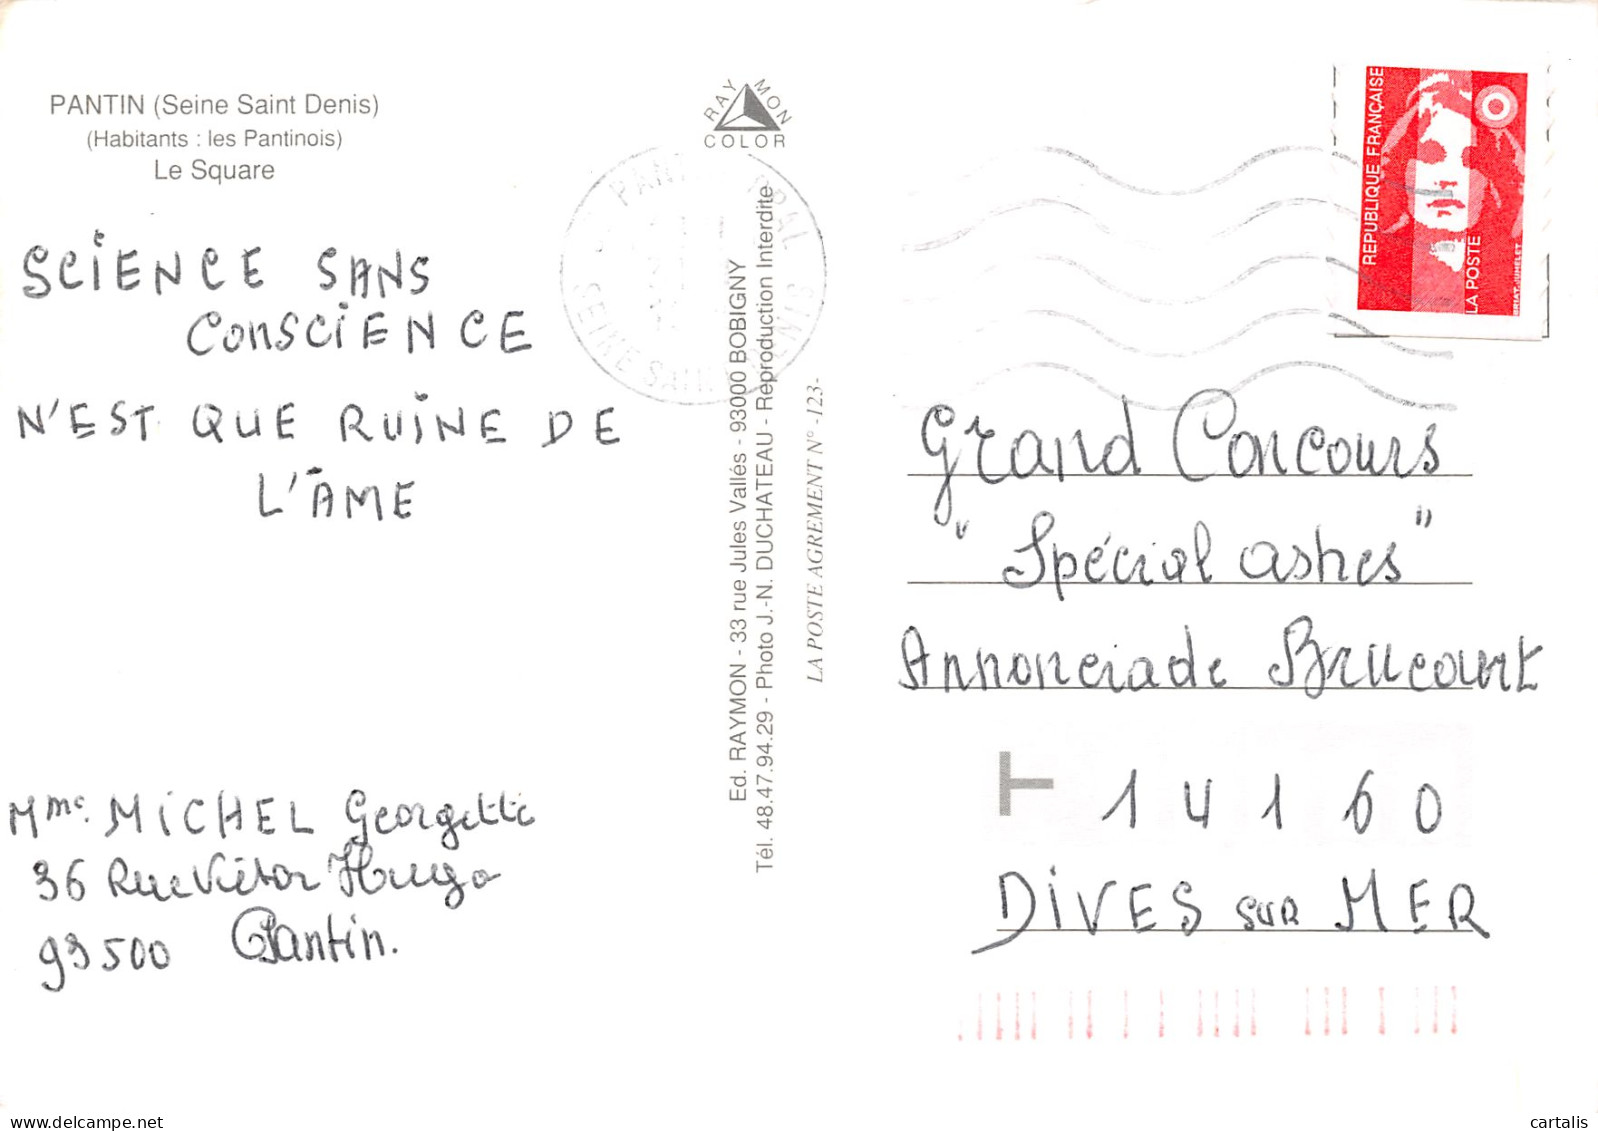 PANTIN (Seine Saint Denis)
(Habitants : les Pantinois)
Le Square
SCIENCE SANS
CONSCIENCE
N'EST QUE RUINE DE
L'ÂME
Mme. MICHEL Georgette
36 Rue Victor Hugo
93500 Pantin.
RAYMON
COLOR
PANTIN PPAL
SEINE SAINT DENIS
Ed. RAYMON - 33 rue Jules Vallés - 93000 BOBIGNY
Tél. 48.47.94.29 - Photo J.-N. DUCHATEAU - Reproduction Interdite
LA POSTE AGREMENT N° -123-
REPUBLIQUE FRANÇAISE
LA POSTE
BRIAT-JUMELET
Grand Concours
"Spécial astres"
Annonciade Brucourt
T 14160
DIVES SUR MER
cartalis